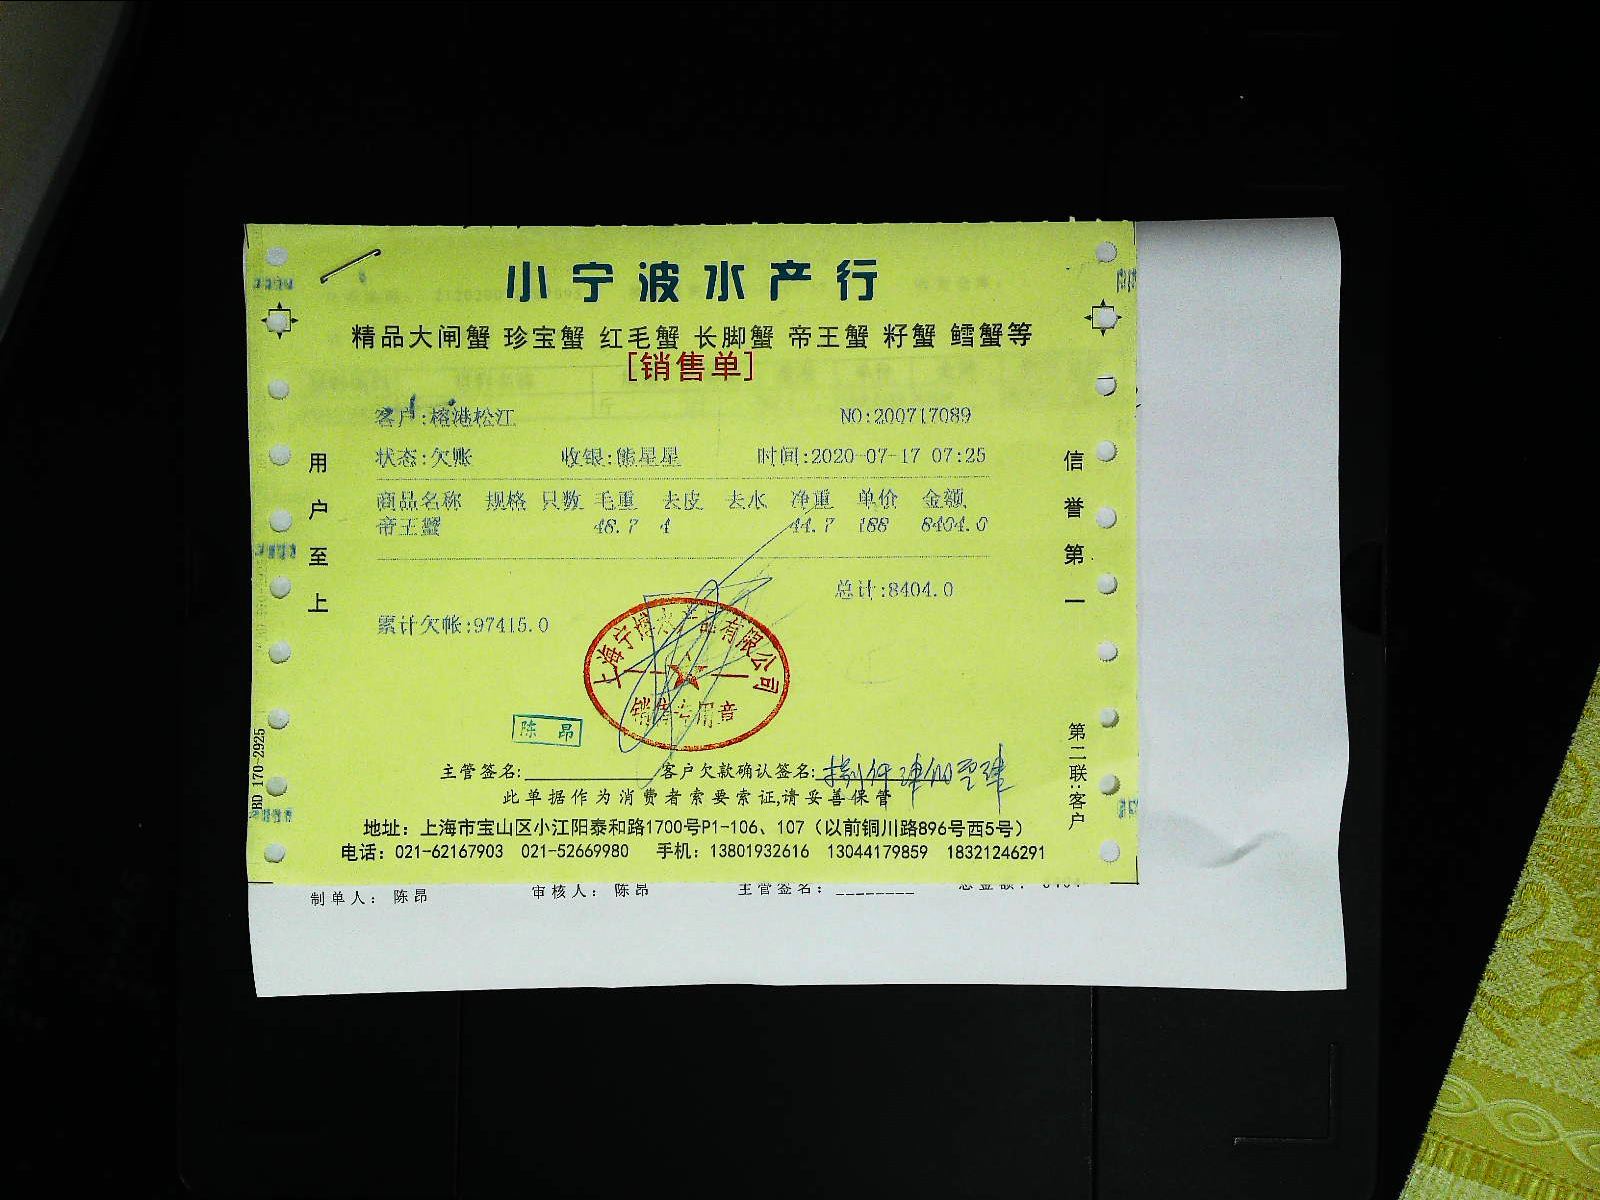 小宁波水产行
精品大闸蟹 珍宝蟹 红毛蟹 长脚蟹 帝王蟹 籽蟹 鳕蟹等
[销售单]
客户:榕港松江 NO:200717089
状态:欠账 收银:熊星星 时间:2020-07-17 07:25
商品名称 规格 只数 毛重 去皮 去水 净重 单价 金额
帝王蟹 48.7 4 44.7 188 8404.0
总计:8404.0
累计欠帐:97415.0
用户至上
信誉第一
上海宁波水产品有限公司
销售专用章
陈昂
主管签名: 客户欠款确认签名:
此单据作为消费者索要索证,请妥善保管
地址：上海市宝山区小江阳泰和路1700号P1-106、107（以前铜川路896号西5号）
电话：021-62167903 021-52669980 手机：13801932616 13044179859 18321246291
第二联:客户
BD 170-2925
制单人： 陈昂 审核人： 陈昂 主管签名：________ 总金额： 8404